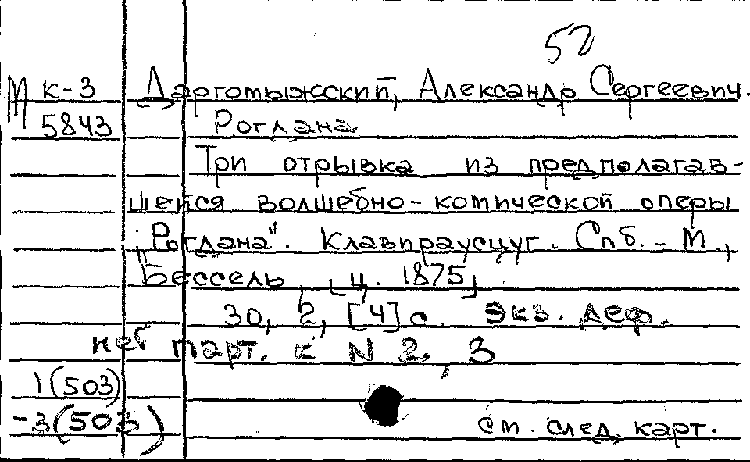 52
М к-3 Даргомыжский, Александр Сергеевич.
5843 Рогдана
Три отрывка из предполагав-
шейся волшебно-комической оперы
„Рогдана". Клавираусцуг. Спб. - М.,
Бессель, [ц. 1875]
30, 2, [4] с. экз. деф.
нет парт. к N 2, 3
1(503)
-3(503) см. след. карт.